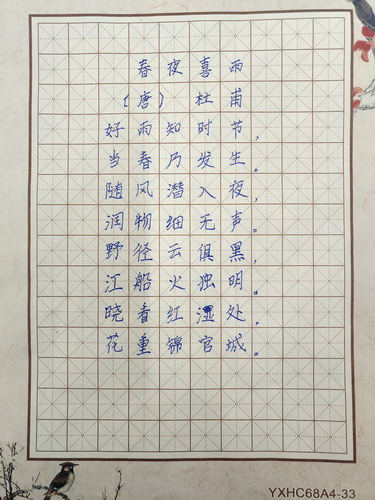 春夜喜雨
(唐) 杜甫
好雨知时节,
当春乃发生。
随风潜入夜,
润物细无声。
野径云俱黑,
江船火独明。
晓看红湿处,
花重锦官城。
YXHC68A4-33